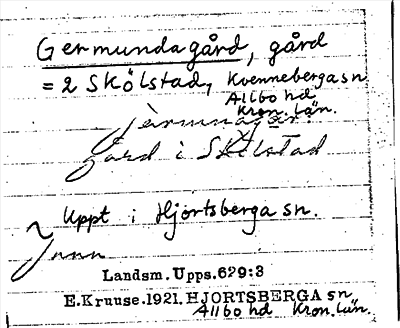 Germundagård, gård
= 2 Skölstad, Kvenneberga sn
Allbo hd
Kron. län.
gård i Skölstad
Uppt i Hjortsberga sn.
Landsm. Upps. 629:3
E. Kruuse. 1921. HJORTSBERGA sn
Allbo hd Kron. län.